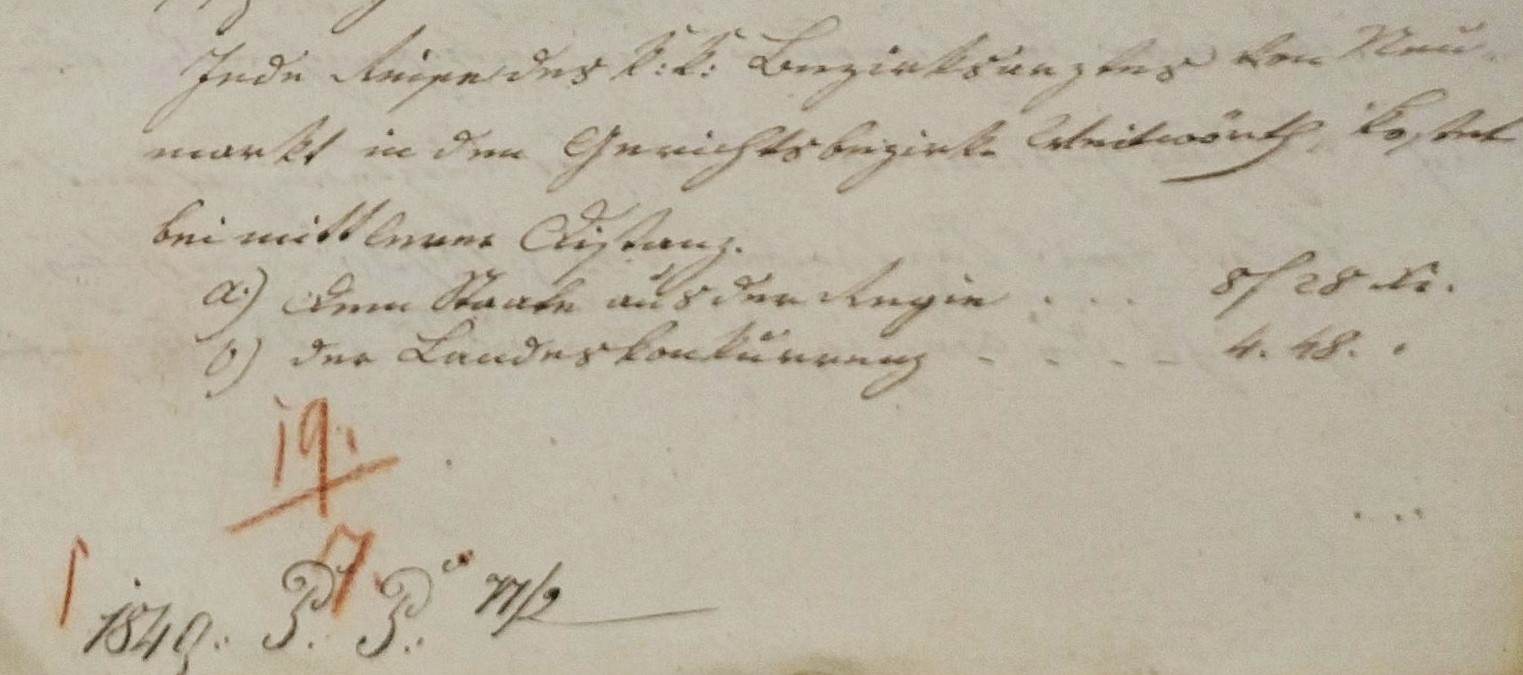 Jede Reise des k: k: Bezirksarztes von Neu-
markt in den Gerichtsbezirk Weitwörth, kostet
bei mittlerer Distanz.
a.) dem Staate aus der Regie . . . 8f 28 kr.
b) der Landeskonkurrenz - - - - 4. 48. "
19.
7.
1849.